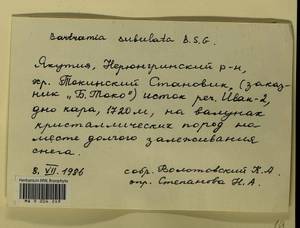 Bartramia subulata B.S.G.
Якутия, Нерюнгринский р-н,
хр. Токинский Становик, (заказ-
ник „Б. Токо") исток реч. Ивак-2,
дно кара, 1720 м, на валунах
кристаллических пород на
месте долгого залеживания
снега.
8. VII. 1986 собр. Волотовский К.А.
опр. Степанова Н.А.